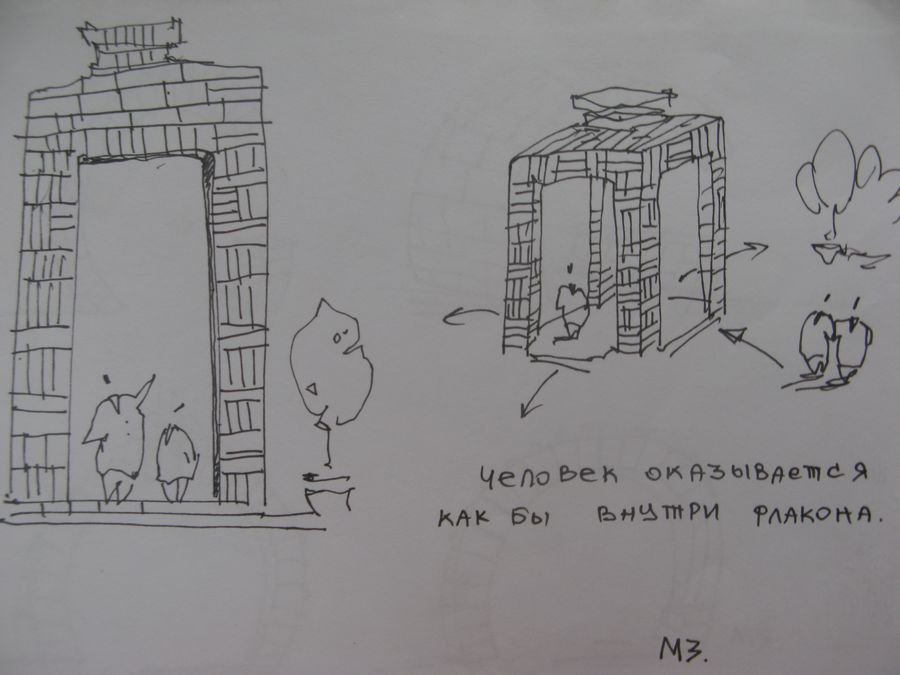 ЧЕЛОВЕК ОКАЗЫВАЕТСЯ
КАК БЫ ВНУТРИ ФЛАКОНА.
МЗ.